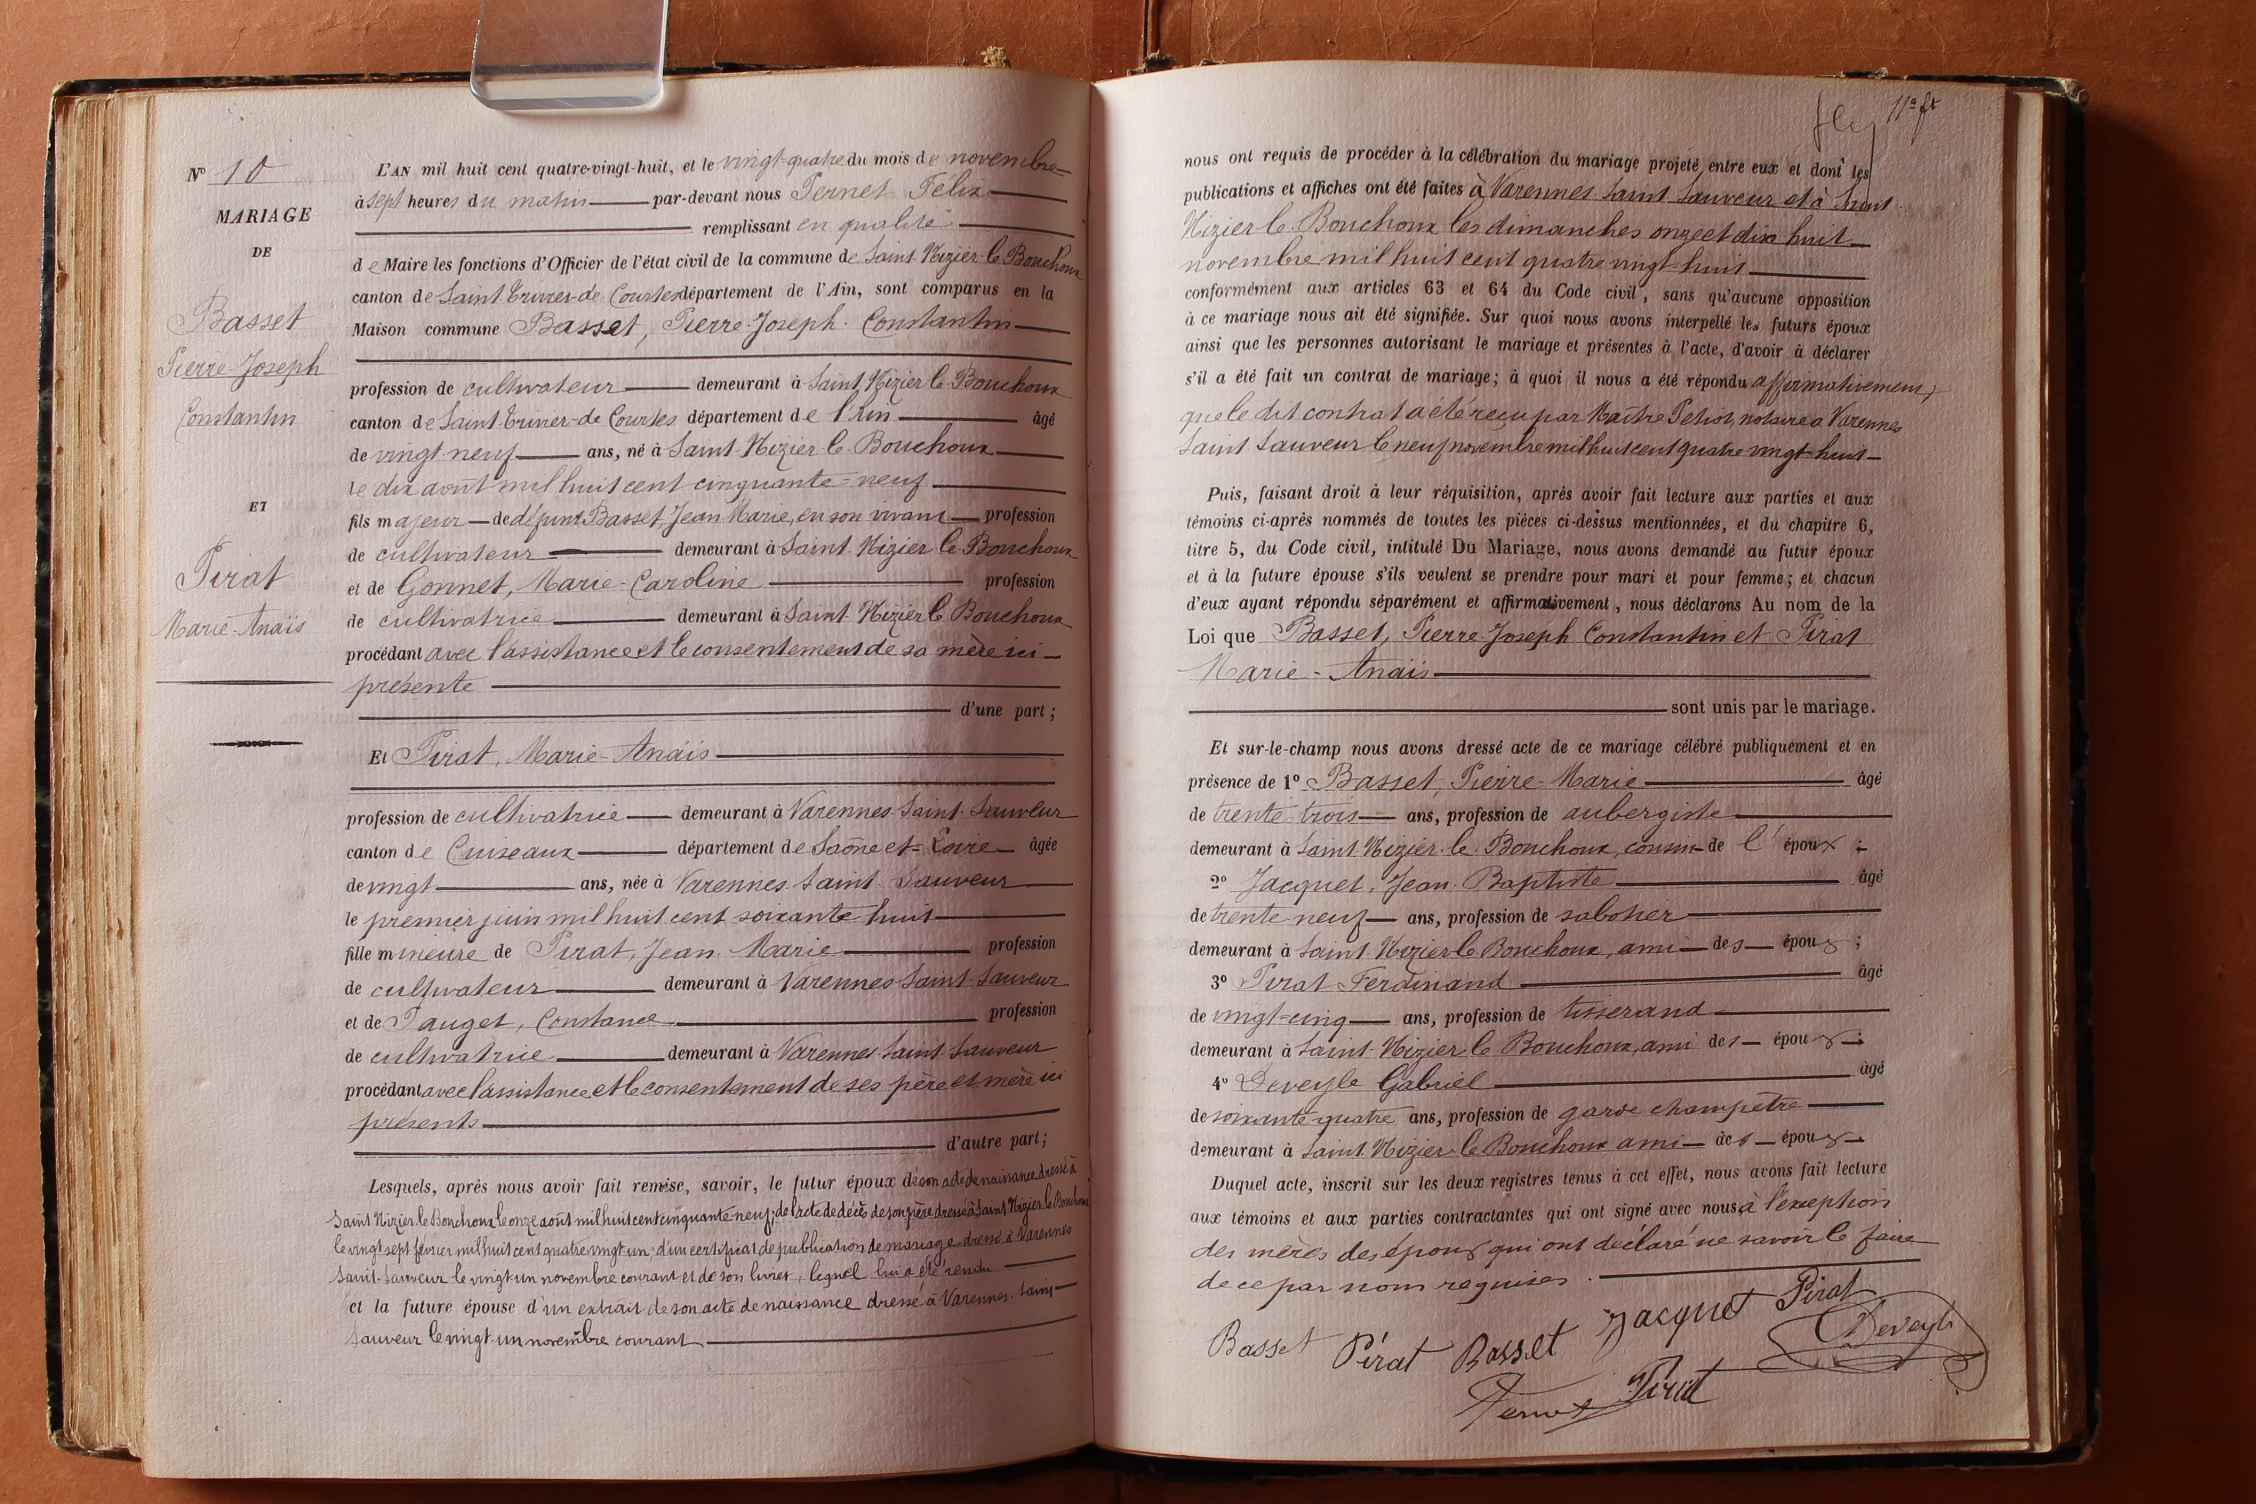 Nº 10
MARIAGE
DE
Basset
Pierre-Joseph
Constantin
ET
Pirat
Marie-Anaïs
L'AN mil huit cent quatre-vingt-huit, et le vingt-quatre du mois de novembre
à sept heures du matin par-devant nous Pernet Félix
remplissant en qualité
de Maire les fonctions d'Officier de l'état civil de la commune de Saint-Nizier-le-Bouchoux
canton de Saint-Trivier-de-Courtes département de l'Ain, sont comparus en la
Maison commune Basset, Pierre-Joseph-Constantin
profession de cultivateur demeurant à Saint Nizier le Bouchoux
canton de Saint-Trivier-de Courtes département de l'Ain âgé
de vingt neuf ans, né à Saint-Nizier-le-Bouchoux
le dix août mil huit cent cinquante-neuf
fils majeur de défunt Basset, Jean Marie, en son vivant profession
de cultivateur demeurant à Saint-Nizier le Bouchoux
et de Gonnet, Marie-Caroline profession
de cultivatrice demeurant à Saint-Nizier le Bouchoux
procédant avec l'assistance et le consentement de sa mère ici
présente
d'une part;
Et Pirat, Marie-Anaïs
profession de cultivatrice demeurant à Varennes-Saint-Sauveur
canton de Cuiseaux département de Saône et-Loire âgée
de vingt ans, née à Varennes Saint Sauveur
le premier juin mil huit cent soixante huit
fille mineure de Pirat, Jean Marie profession
de cultivateur demeurant à Varennes-Saint-Sauveur
et de Pauget, Constance profession
de cultivatrice demeurant à Varennes Saint Sauveur
procédant avec l'assistance et le consentement de ses père et mère ici
présents
d'autre part;
Lesquels, après nous avoir fait remise, savoir, le futur époux de son acte de naissance dressé à
Saint Nizier le Bouchoux le onze août mil huit cent cinquante neuf; de l'acte de décès de son père dressé à Saint Nizier le Bouchoux
le vingt sept février mil huit cent quatre vingt un; d'un certificat de publication de mariage dressé à Varennes
Saint-Sauveur le vingt-un novembre courant et de son livret, lequel lui a été rendu
et la future épouse d'un extrait de son acte de naissance dressé à Varennes-Saint
Sauveur le vingt-un novembre courant
11e ft
nous ont requis de procéder à la célébration du mariage projeté entre eux et dont les
publications et affiches ont été faites à Varennes Saint Sauveur et à Saint
Nizier-le-Bouchoux les dimanches onze et dix huit
novembre mil huit cent quatre vingt-huit
conformément aux articles 63 et 64 du Code civil, sans qu'aucune opposition
à ce mariage nous ait été signifiée. Sur quoi nous avons interpellé les futurs époux
ainsi que les personnes autorisant le mariage et présentes à l'acte, d'avoir à déclarer
s'il a été fait un contrat de mariage; à quoi il nous a été répondu affirmativement,
que le dit contrat a été reçu par Maître Petiot, notaire à Varennes
Saint Sauveur le neuf novembre mil huit cent quatre vingt-huit
Puis, faisant droit à leur réquisition, après avoir fait lecture aux parties et aux
témoins ci-après nommés de toutes les pièces ci-dessus mentionnées, et du chapitre 6,
titre 5, du Code civil, intitulé Du Mariage, nous avons demandé au futur époux
et à la future épouse s'ils veulent se prendre pour mari et pour femme; et chacun
d'eux ayant répondu séparément et affirmativement, nous déclarons Au nom de la
Loi que Basset, Pierre-Joseph Constantin et Pirat
Marie-Anaïs
sont unis par le mariage.
Et sur-le-champ nous avons dressé acte de ce mariage célébré publiquement et en
présence de 1º Basset, Pierre-Marie âgé
de trente-trois ans, profession de aubergiste
demeurant à Saint Nizier-le-Bouchoux, cousin de l'époux;
2º Jacquet, Jean-Baptiste âgé
de trente-neuf ans, profession de sabotier
demeurant à Saint-Nizier le Bouchoux, ami des époux;
3º Pirat Ferdinand âgé
de vingt-cinq ans, profession de tisserand
demeurant à Saint-Nizier le Bouchoux, ami des époux;
4º Deveyle Gabriel âgé
de soixante quatre ans, profession de garde champêtre
demeurant à Saint Nizier-le-Bouchoux ami des époux
Duquel acte, inscrit sur les deux registres tenus à cet effet, nous avons fait lecture
aux témoins et aux parties contractantes qui ont signé avec nous à l'exception
des mères des époux qui ont déclaré ne savoir le faire
de ce par nous requises.
Basset Pirat Basset Jacquet Pirat
Deveyle
Pernet Pirat